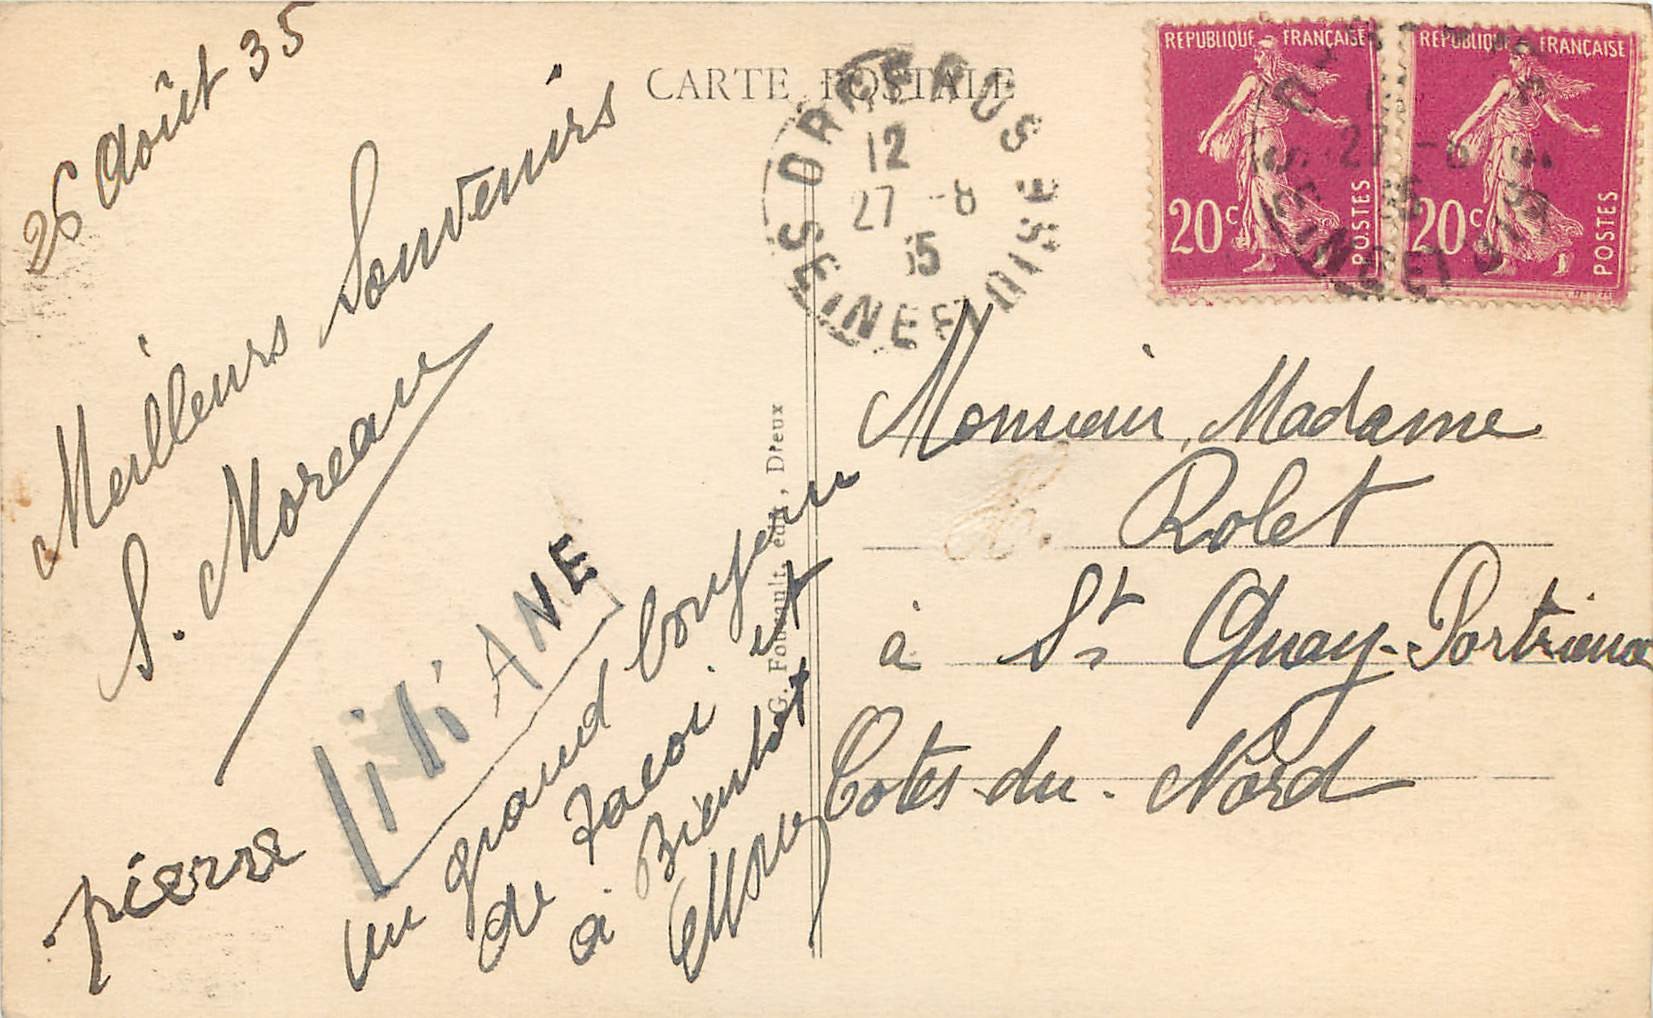 26 Août 35
Meilleurs Souvenirs
S. Moreau
pierre
liliANE
un grand
de moi et
à Bientot
CARTE POSTALE
12
27 -8
35
SEINE ET OISE
G. Foucault, édit., Dreux
REPUBLIQUE FRANÇAISE
20c
POSTES
REPUBLIQUE FRANÇAISE
20c
POSTES
27 -8
35
SEINE ET OISE
Monsieur, Madame
Rolet
à St Quay-Portrieux
Cotes-du-Nord